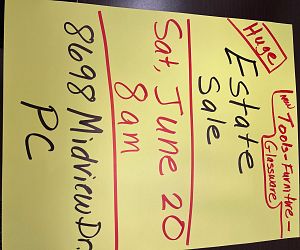 Huge
Estate
Sale
new Tools-Furniture-
Glassware
Sat, June 20
8am
8698 Midview Dr.
PC